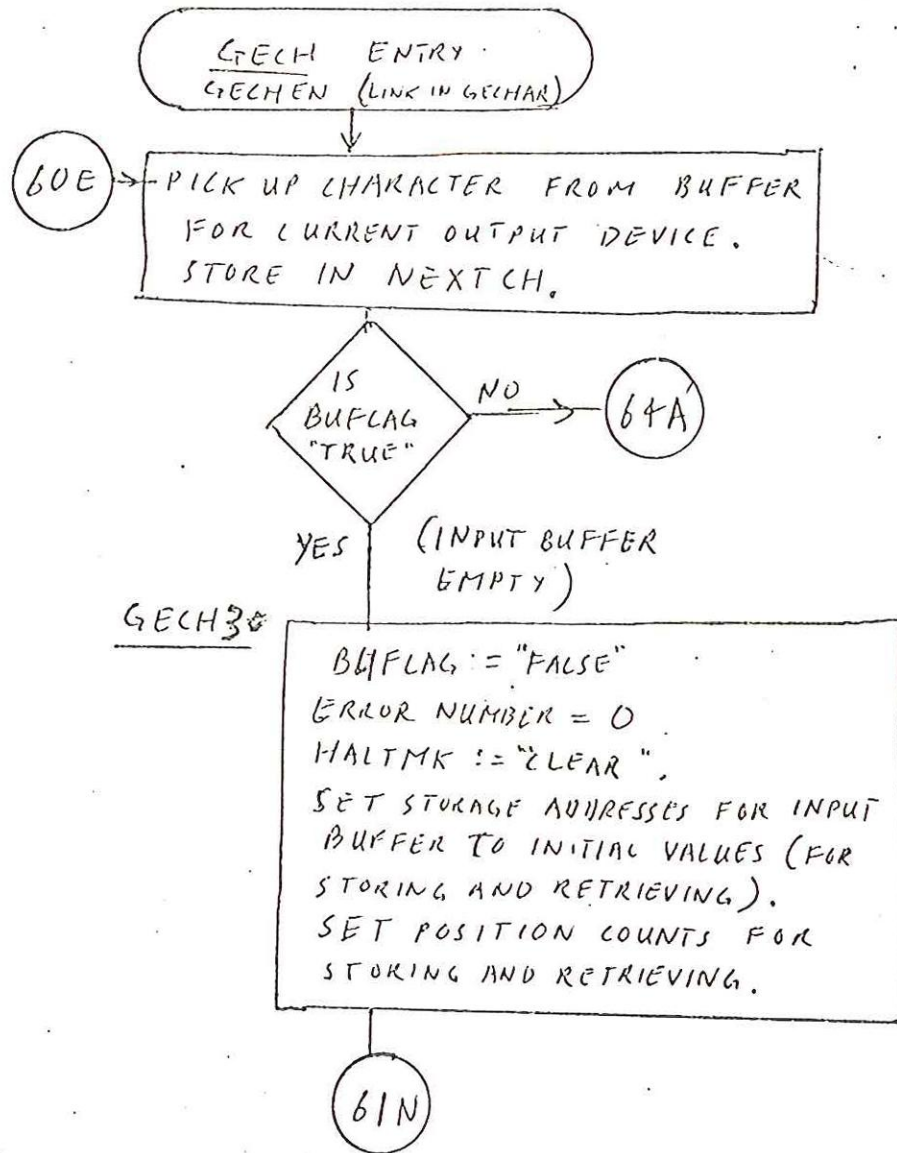 GECH ENTRY
GECHEN (LINK IN GECHAR)
60E
PICK UP CHARACTER FROM BUFFER
FOR CURRENT OUTPUT DEVICE.
STORE IN NEXTCH.
IS
BUFLAG
"TRUE"
NO
64A
YES
(INPUT BUFFER
EMPTY)
GECH3
BUFLAG := "FALSE"
ERROR NUMBER = 0
HALTMK := "CLEAR".
SET STORAGE ADDRESSES FOR INPUT
BUFFER TO INITIAL VALUES (FOR
STORING AND RETRIEVING).
SET POSITION COUNTS FOR
STORING AND RETRIEVING.
61N